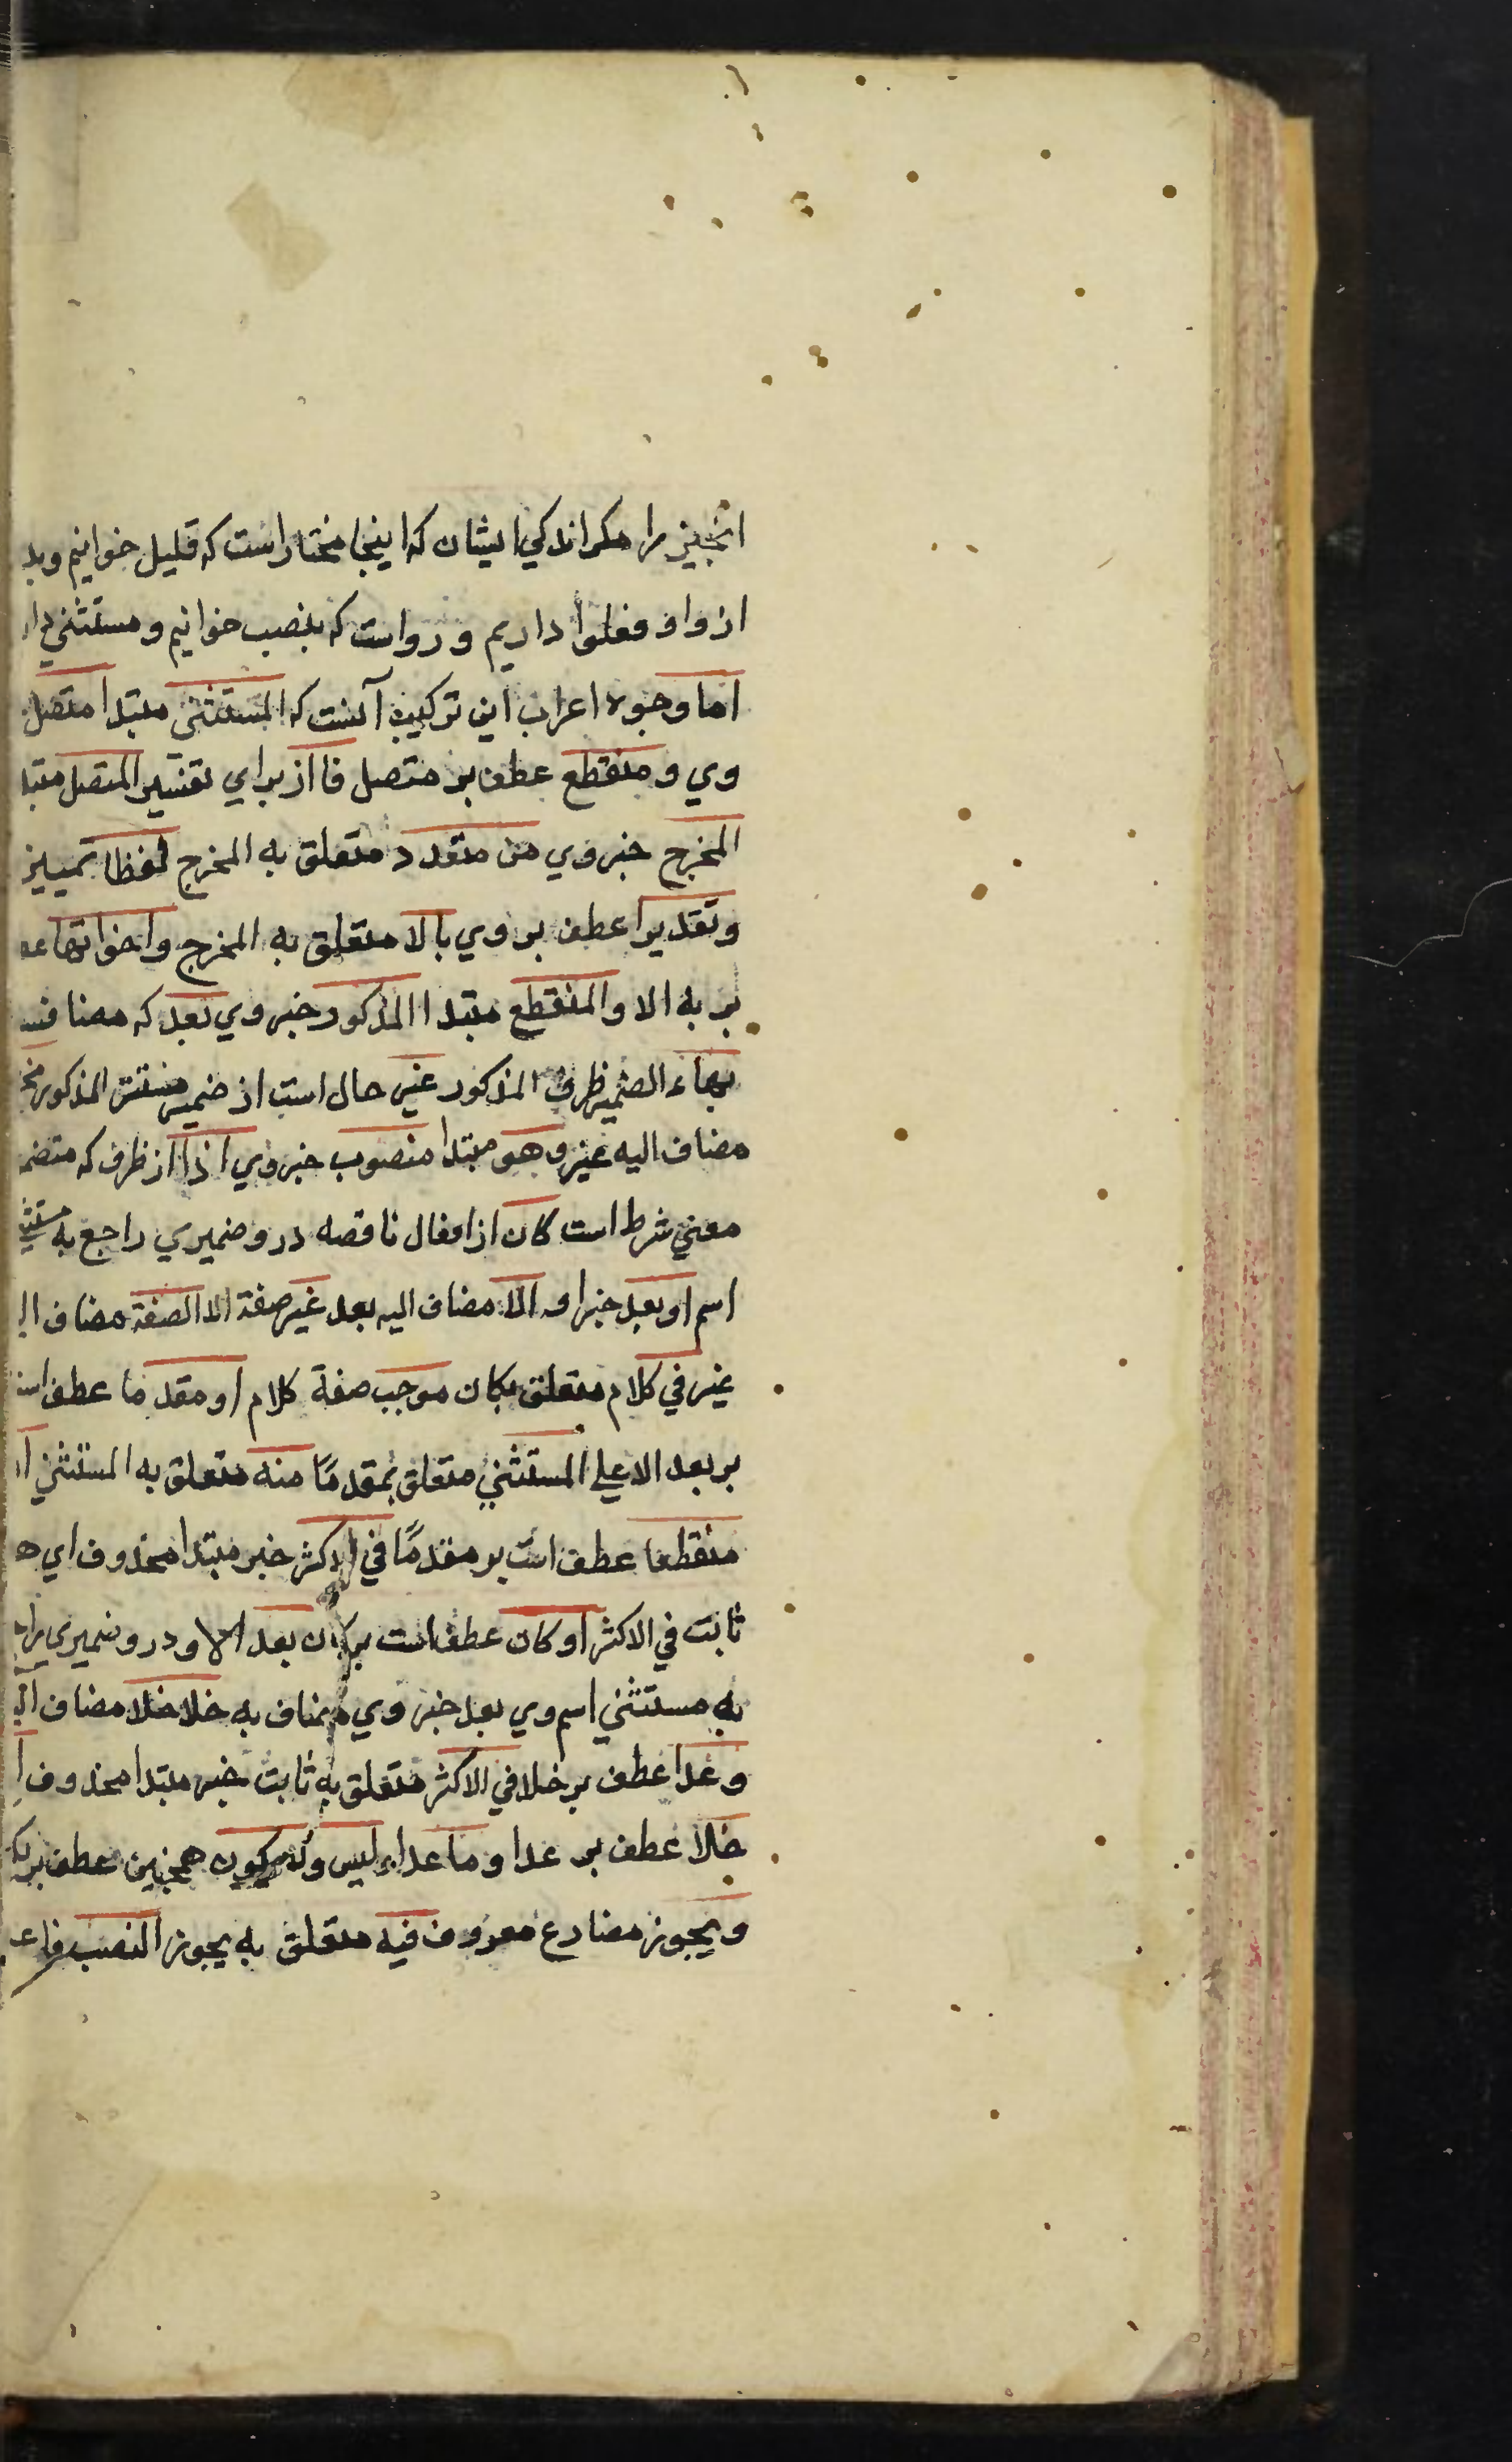 انچیز را مکر اندکي ایشان که اینجا مختار است که قلیل خوانیم و بد
از واو فعلوا داریم و رواست که بنصب خوانیم و مستثني دا
اما وجوه اعراب این ترکیب آنست که المستثنى مبتدا متصل
وي و منقطع عطف بر متصل فا از براي تفسیر المتصل مبتد
المخرج خبر وي من متعدد متعلق به المخرج لفظا تمییز
و تقدیرا عطف بر وي بالا متعلق به المخرج و اخواتها ع
بر به الا و المنقطع مبتدا المذکور خبر وي بعد که مضافس
بهاء الضمیر ظرف المذکور غیر حال است از ضمیر مستتر المذکور مخ
مضاف الیه غیر و هو مبتدا منصوب خبر وي اذا از ظرف که متضم
معني شرط است کان از افعال ناقصه درو ضمیري راجع به مستثنی
اسم او بعد خبر او الا مضاف الیه بعد غیر صفة الا الصفة مضاف الی
غیر في کلام متعلق بکان موجب صفة کلام او مقدما عطف است
بر بعد الا علي المستثني متعلق بمقدمًا منه متعلق به المستثني او
منقطعا عطف است بر مقدمًا في الاکثر خبر مبتدا محذوف اي ه
ثابت في الاکثر او کان عطف است بر کان بعد الا و درو ضمیری راج
به مستثني اسم وي بعد خبر وي مضاف به خلا خلا مضاف الی
و عدا عطف بر خلا في الاکثر متعلق به ثابت خبر مبتدا محذوف ا
خلا عطف بر عدا و ما عدا و لیس و لا یکون همچنین عطف بر یک
و یجوز مضارع معروف فیه متعلق به یجوز النصب فاعـ